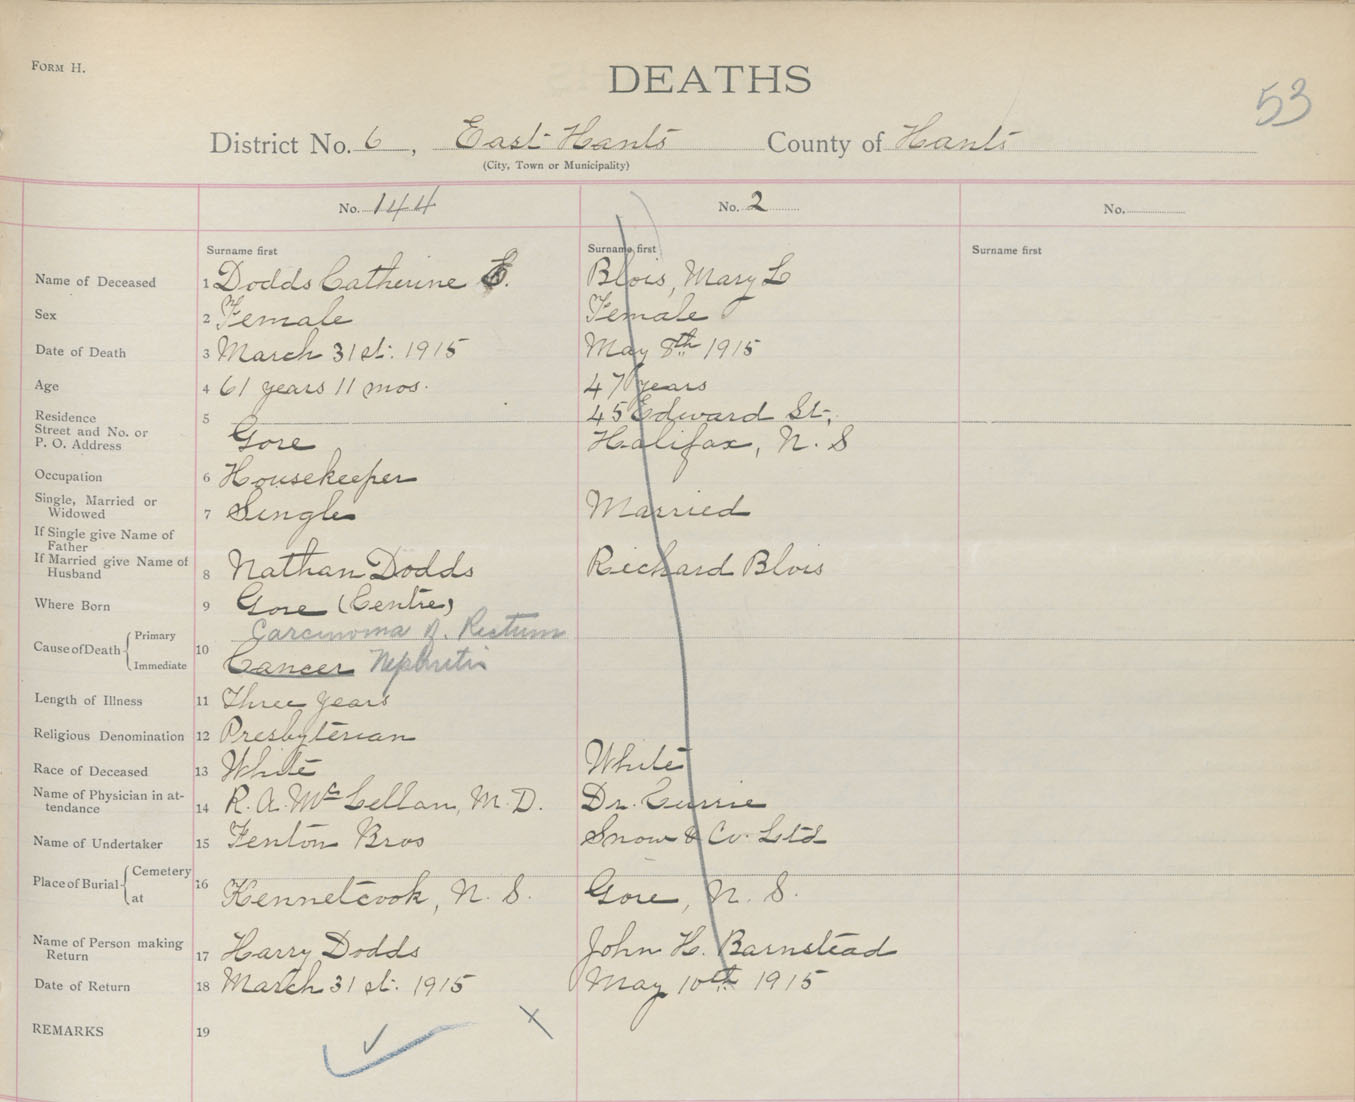 FORM H.
DEATHS
53
District No. 6, East Hants County of Hants
(City, Town or Municipality)
No. 144 No. 2 No.
Surname first Surname first Surname first
Name of Deceased 1 Dodds Catherine E. Blois, Mary L
Sex 2 Female Female
Date of Death 3 March 31st. 1915 May 8th 1915
Age 4 61 years 11 mos. 47 years
Residence 5 45 Edward St.,
Street and No. or
P. O. Address Gore Halifax, N. S
Occupation 6 Housekeeper
Single, Married or
Widowed 7 Single Married
If Single give Name of
Father
If Married give Name of
Husband 8 Nathan Dodds Richard Blois
Where Born 9 Gore (Centre)
Cause of Death Primary 10 Carcinoma of Rectum
Immediate Cancer Nephritis
Length of Illness 11 Three years
Religious Denomination 12 Presbyterian
Race of Deceased 13 White White
Name of Physician in at-
tendance 14 R. A. McLellan, M. D. Dr. Currie
Name of Undertaker 15 Fenton Bros Snow & Co. Ltd
Place of Burial Cemetery 16
at Kennetcook, N. S. Gore, N. S.
Name of Person making
Return 17 Harry Dodds John H. Barnstead
Date of Return 18 March 31st. 1915 May 10th. 1915
REMARKS 19